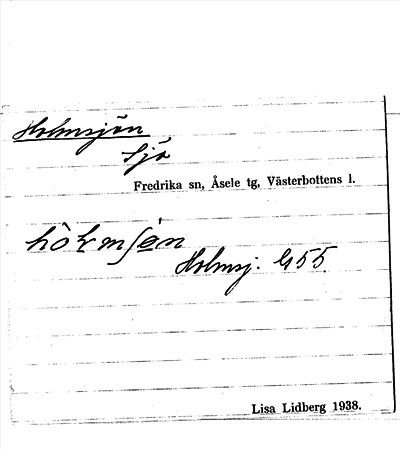 Holmsjön
Sjö
Fredrika sn, Åsele tg, Västerbottens l.
Holmsj. G 55
Lisa Lidberg 1938.